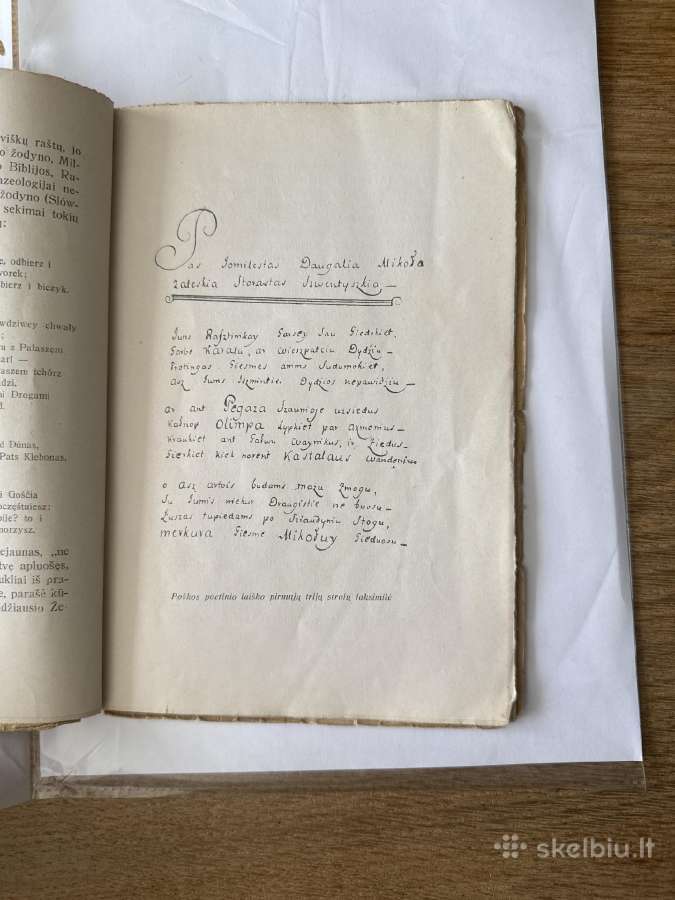 viškų raštų, jo
o žodyno, Mil-
o Biblijos, Ru-
azeologijai ne-
žodyno (Słów-
sekimai tokių
ų:
e, odbierz i
worek;
bierz i biczyk.
wdziwey chwały
a z Pałaszem
arl —
łaszem tchórz
dzi.
ni Drogami
d.
d Dūnas,
Pats Klebonas.
i Gościa
oczęstuiesz:
bile? to i
morzysz.
ejaunas, „ne
tvę apluošęs,
ukliai iš pra-
e, parašė kū-
džiausio Že-
Pas Jomilestas Daugalia Mikoła
zaleskia Storastas Szwentyszkia —
Jums Rafztinikay Garsey Jau Giedokiet,
Garbe Karalu, ar wieszpatciu Dydziu —
Protingas Giesmes amms Sudumokiet,
Asz Jums Iszmintie. Dydzios nepawidziu —
ar ant Pegaza Szaumoje uzsiedus
Kalnop Olimpa Lypkiet par armonius —
Kraukiet ant Galwu waynikus, ir Ziedus —
Gierkiet kiek norent Kastalaus wandenius
o asz artois budams mazu Zmogu,
Su Jumis niekur Draugistie ne buosu —
Luszas tupiedams po Sziaudyniu Stogu,
merkura Giesme Mikołuy Gieduosu —
Poškos poetinio laiško pirmųjų trijų strofų faksimilė
skelbiu.lt